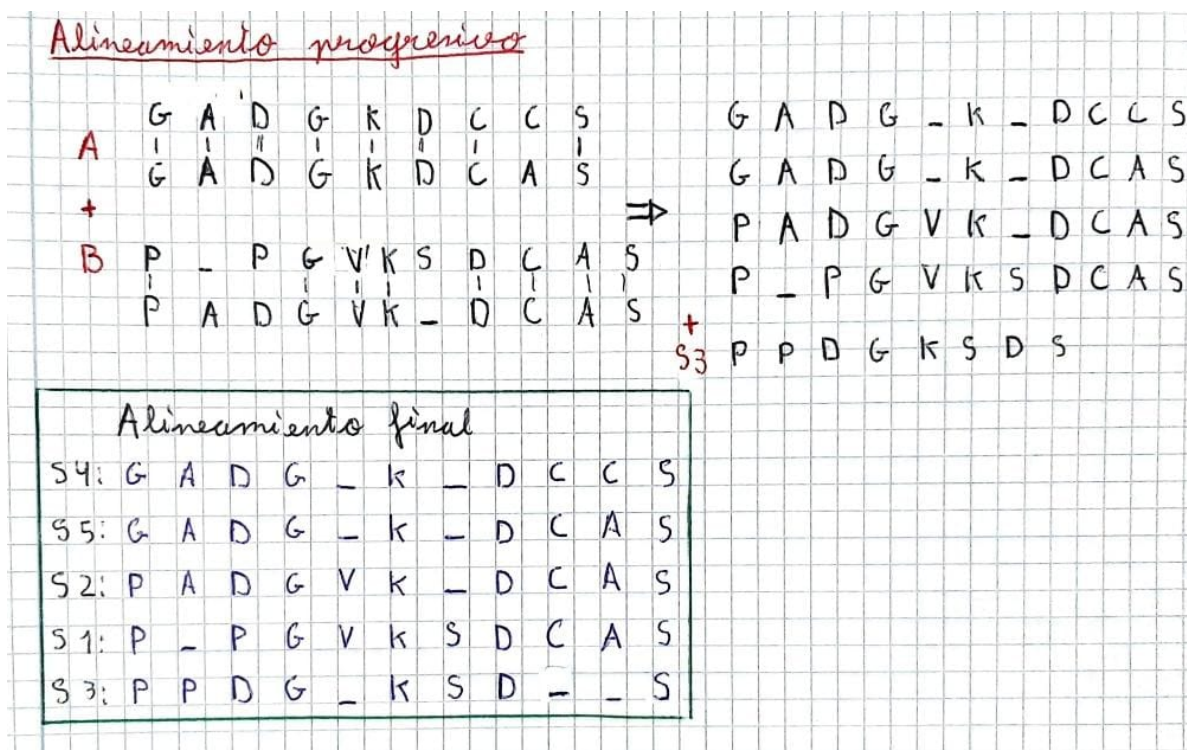 Alineamiento progresivo
A
G A D G K D C C S
G A D G K D C A S
+
B
P _ P G V K S D C A S
P A D G V K _ D C A S
⇒
G A D G _ K _ D C C S
G A D G _ K _ D C A S
P A D G V K _ D C A S
P _ P G V K S D C A S
+
S3 P P D G K S D S
Alineamiento final
S4: G A D G _ K _ D C C S
S5: G A D G _ K _ D C A S
S2: P A D G V K _ D C A S
S1: P _ P G V K S D C A S
S3: P P D G _ K S D _ _ S